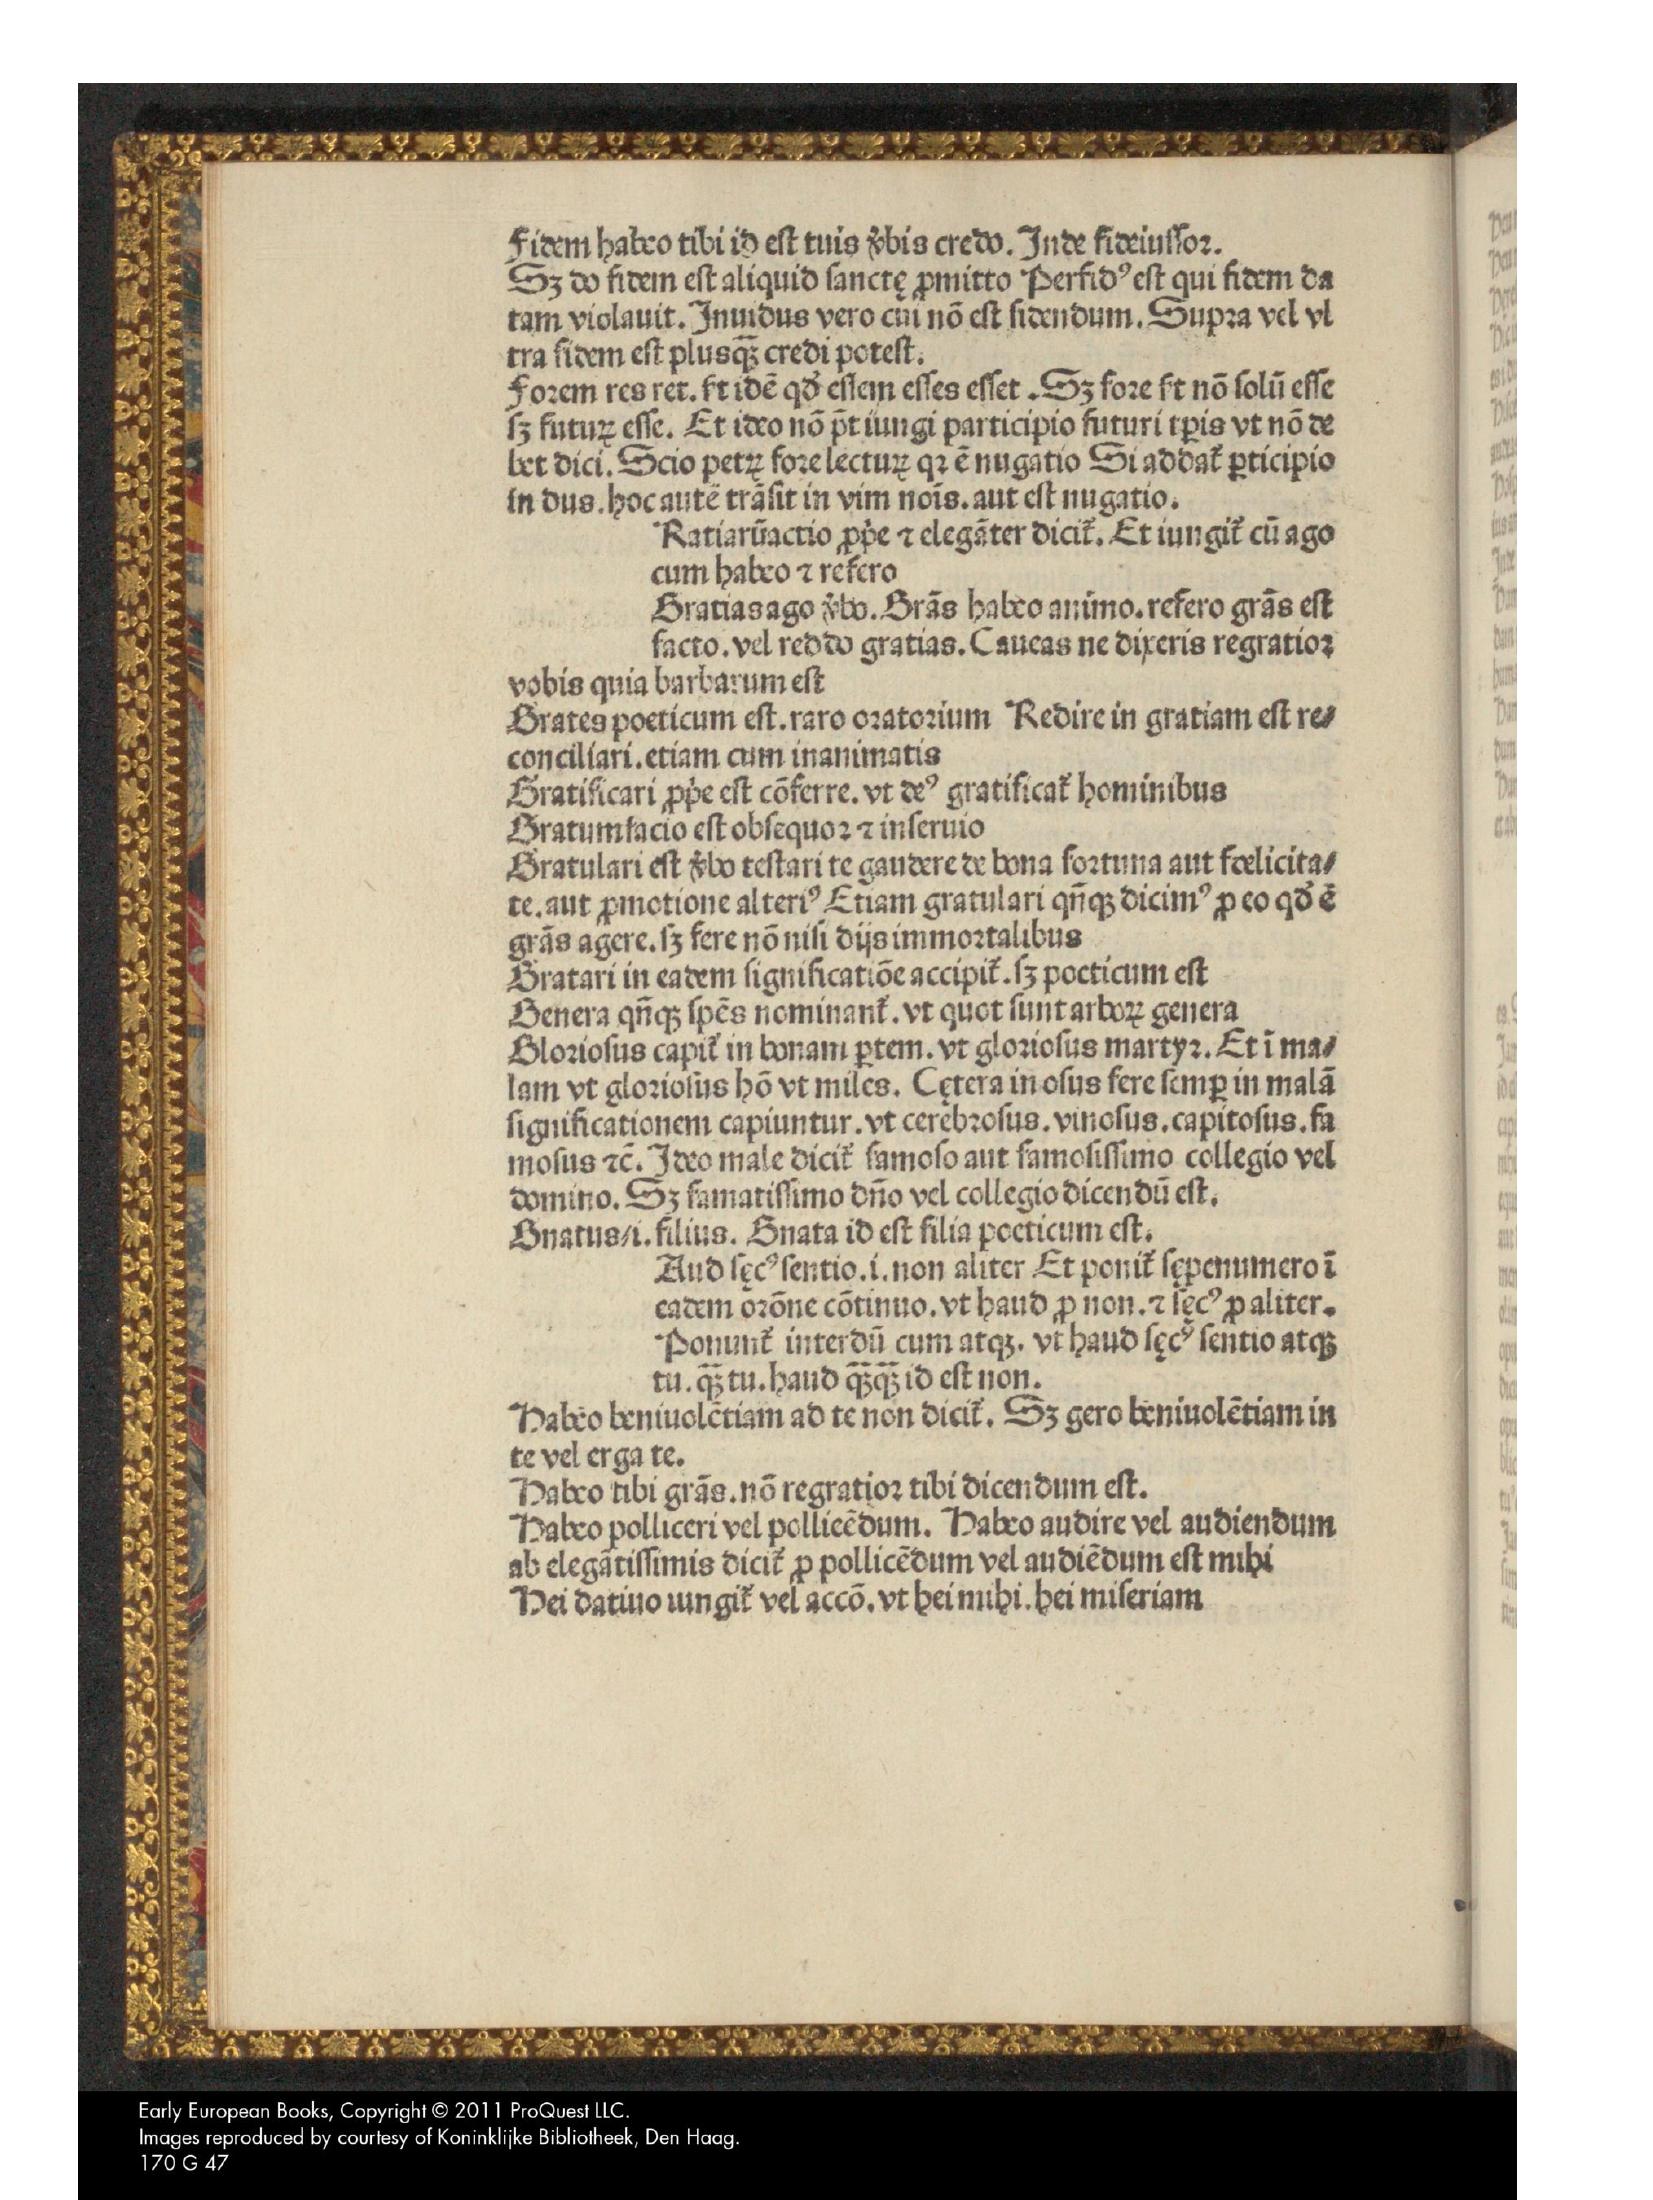 Fidem habeo tibi id est tuis v̾bis credo. Inde fideiuſſoꝛ.
Sꝫ do fidem est aliquid ſanctę ꝓmitto Perfidꝰ eſt qui fidem da
tam violauit. Inuidus vero cui nō eſt fidendum. Supꝛa vel vl
tra fidem eſt plusq̄ꝫ credi poteſt.
Foꝛem res ret. ſt idē qd̾ eſſem eſſes eſſet. Sꝫ foꝛe ſt nō ſolū eſſe
ſꝫ futuꝝ eſſe. Et ideo nō p̄t iungi participio futuri tꝑis vt nō de
bet dici. Scio petꝝ foꝛe lectuꝝ qꝛ ē nugatio Si addat᷑ ꝑticipio
in dus. hoc autē trāſit in vim nois. aut eſt nugatio.
Ratiarūactio ꝓṗe ⁊ elegāter dicit᷑. Et iungit᷑ cū ago
cum habeo ⁊ refero
Gratias ago v̾bo. Grās habeo animo. refero grās eſt
facto. vel reddo gratias. Caueas ne dixeris regratioꝛ
vobis quia barbarum eſt
Grates poeticum eſt. raro oꝛatoꝛium Redire in gratiam eſt re⸗
conciliari. etiam cum inanimatis
Gratificari ꝓṗe eſt cōferre. vt deꝰ gratificat᷑ hominibus
Gratumfacio eſt obſequoꝛ ⁊ inſeruio
Gratulari eſt v̾bo teſtari te gaudere de bona foꝛtuna aut fœlicita⸗
te. aut ꝓmotione alteriꝰ Etiam gratulari qn̄qꝫ dicimꝰ ꝓ eo qd̾ ē
grās agere. ſꝫ fere nō niſi dijs immoꝛtalibus
Gratari in eadem ſignificatiōe accipit᷑. ſꝫ poeticum eſt
Genera qn̄qꝫ ſpēs nominant᷑. vt quot ſunt arboꝝ genera
Gloꝛioſus capit᷑ in bonam ꝑtem. vt gloꝛioſus martyꝛ. Et ī ma⸗
lam vt gloꝛioſus hō vt miles. Cętera in oſus fere ſemꝑ in malā
ſignificationem capiuntur. vt cerebꝛoſus. vinoſus. capitoſus. fa
moſus ⁊c̄. Ideo male dicit᷑ famoſo aut famoſiſſimo collegio vel
domino. Sꝫ famatiſſimo dn̄o vel collegio dicendū eſt.
Gnatus/i. filius. Gnata id eſt filia poeticum eſt.
Aud ſęcꝰ ſentio. i. non aliter Et ponit᷑ ſępenumero ī
eadem oꝛōne cōtinuo. vt haud ꝓ non. ⁊ ſęcꝰ ꝓ aliter.
Ponunt᷑ interdū cum atqꝫ. vt haud ſęcꝰ ſentio atqꝫ
tu. q̄ꝫ tu. haud q̄ꝫq̄ꝫ id eſt non.
Habeo beniuolētiam ad te non dicit᷑. Sꝫ gero beniuolētiam in
te vel erga te.
Habeo tibi grās. nō regratioꝛ tibi dicendum eſt.
Habeo polliceri vel pollicēdum. Habeo audire vel audiendum
ab elegātiſſimis dicit᷑ ꝓ pollicēdum vel audiēdum eſt mihi
Hei datiuo iungit᷑ vel accō. vt hei mihi. hei miſeriam
Early European Books, Copyright © 2011 ProQuest LLC.
Images reproduced by courtesy of Koninklijke Bibliotheek, Den Haag.
170 G 47